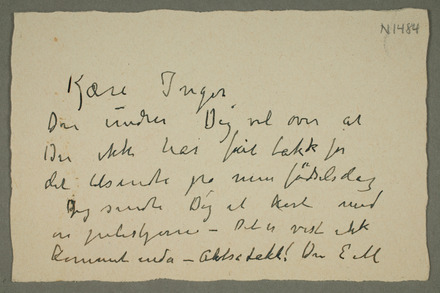 N1484
Kære Inger
Du undres Dig vel over at
Du ikke har fåt takk for
det tilsendte på min födselsdag
Jeg sendte Dig et kort med
en julestjerne – Det er vist ikke
kommet enda – Altså takk! Din E M